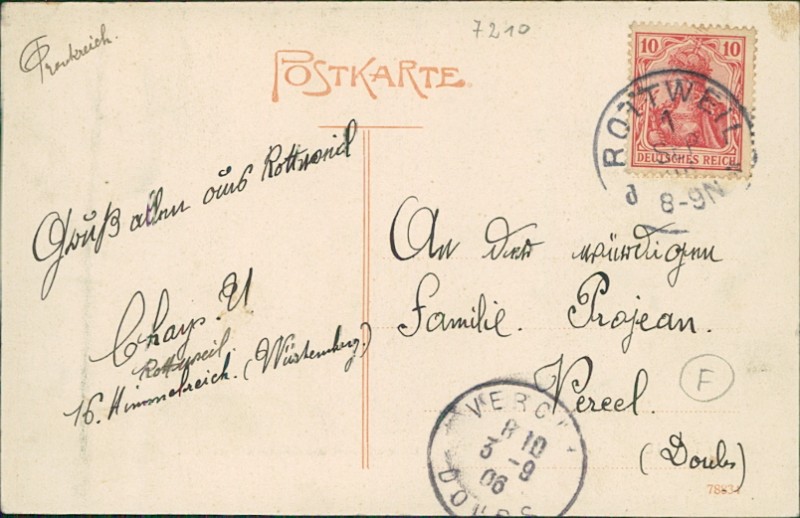 Frankreich.
7210
POSTKARTE.
10 10
DEUTSCHES REICH
ROTTWEIL
1
SEP
8-9N
d
Gruß allen aus Rottweil
Chays. U
Rottweil.
16. Himmelreich. (Württemberg.)
An der würdigen
Familie. Projean.
Vercel.
(Doubs)
F
VERCEL
8 10
3 -9
06
DOUBS
78834